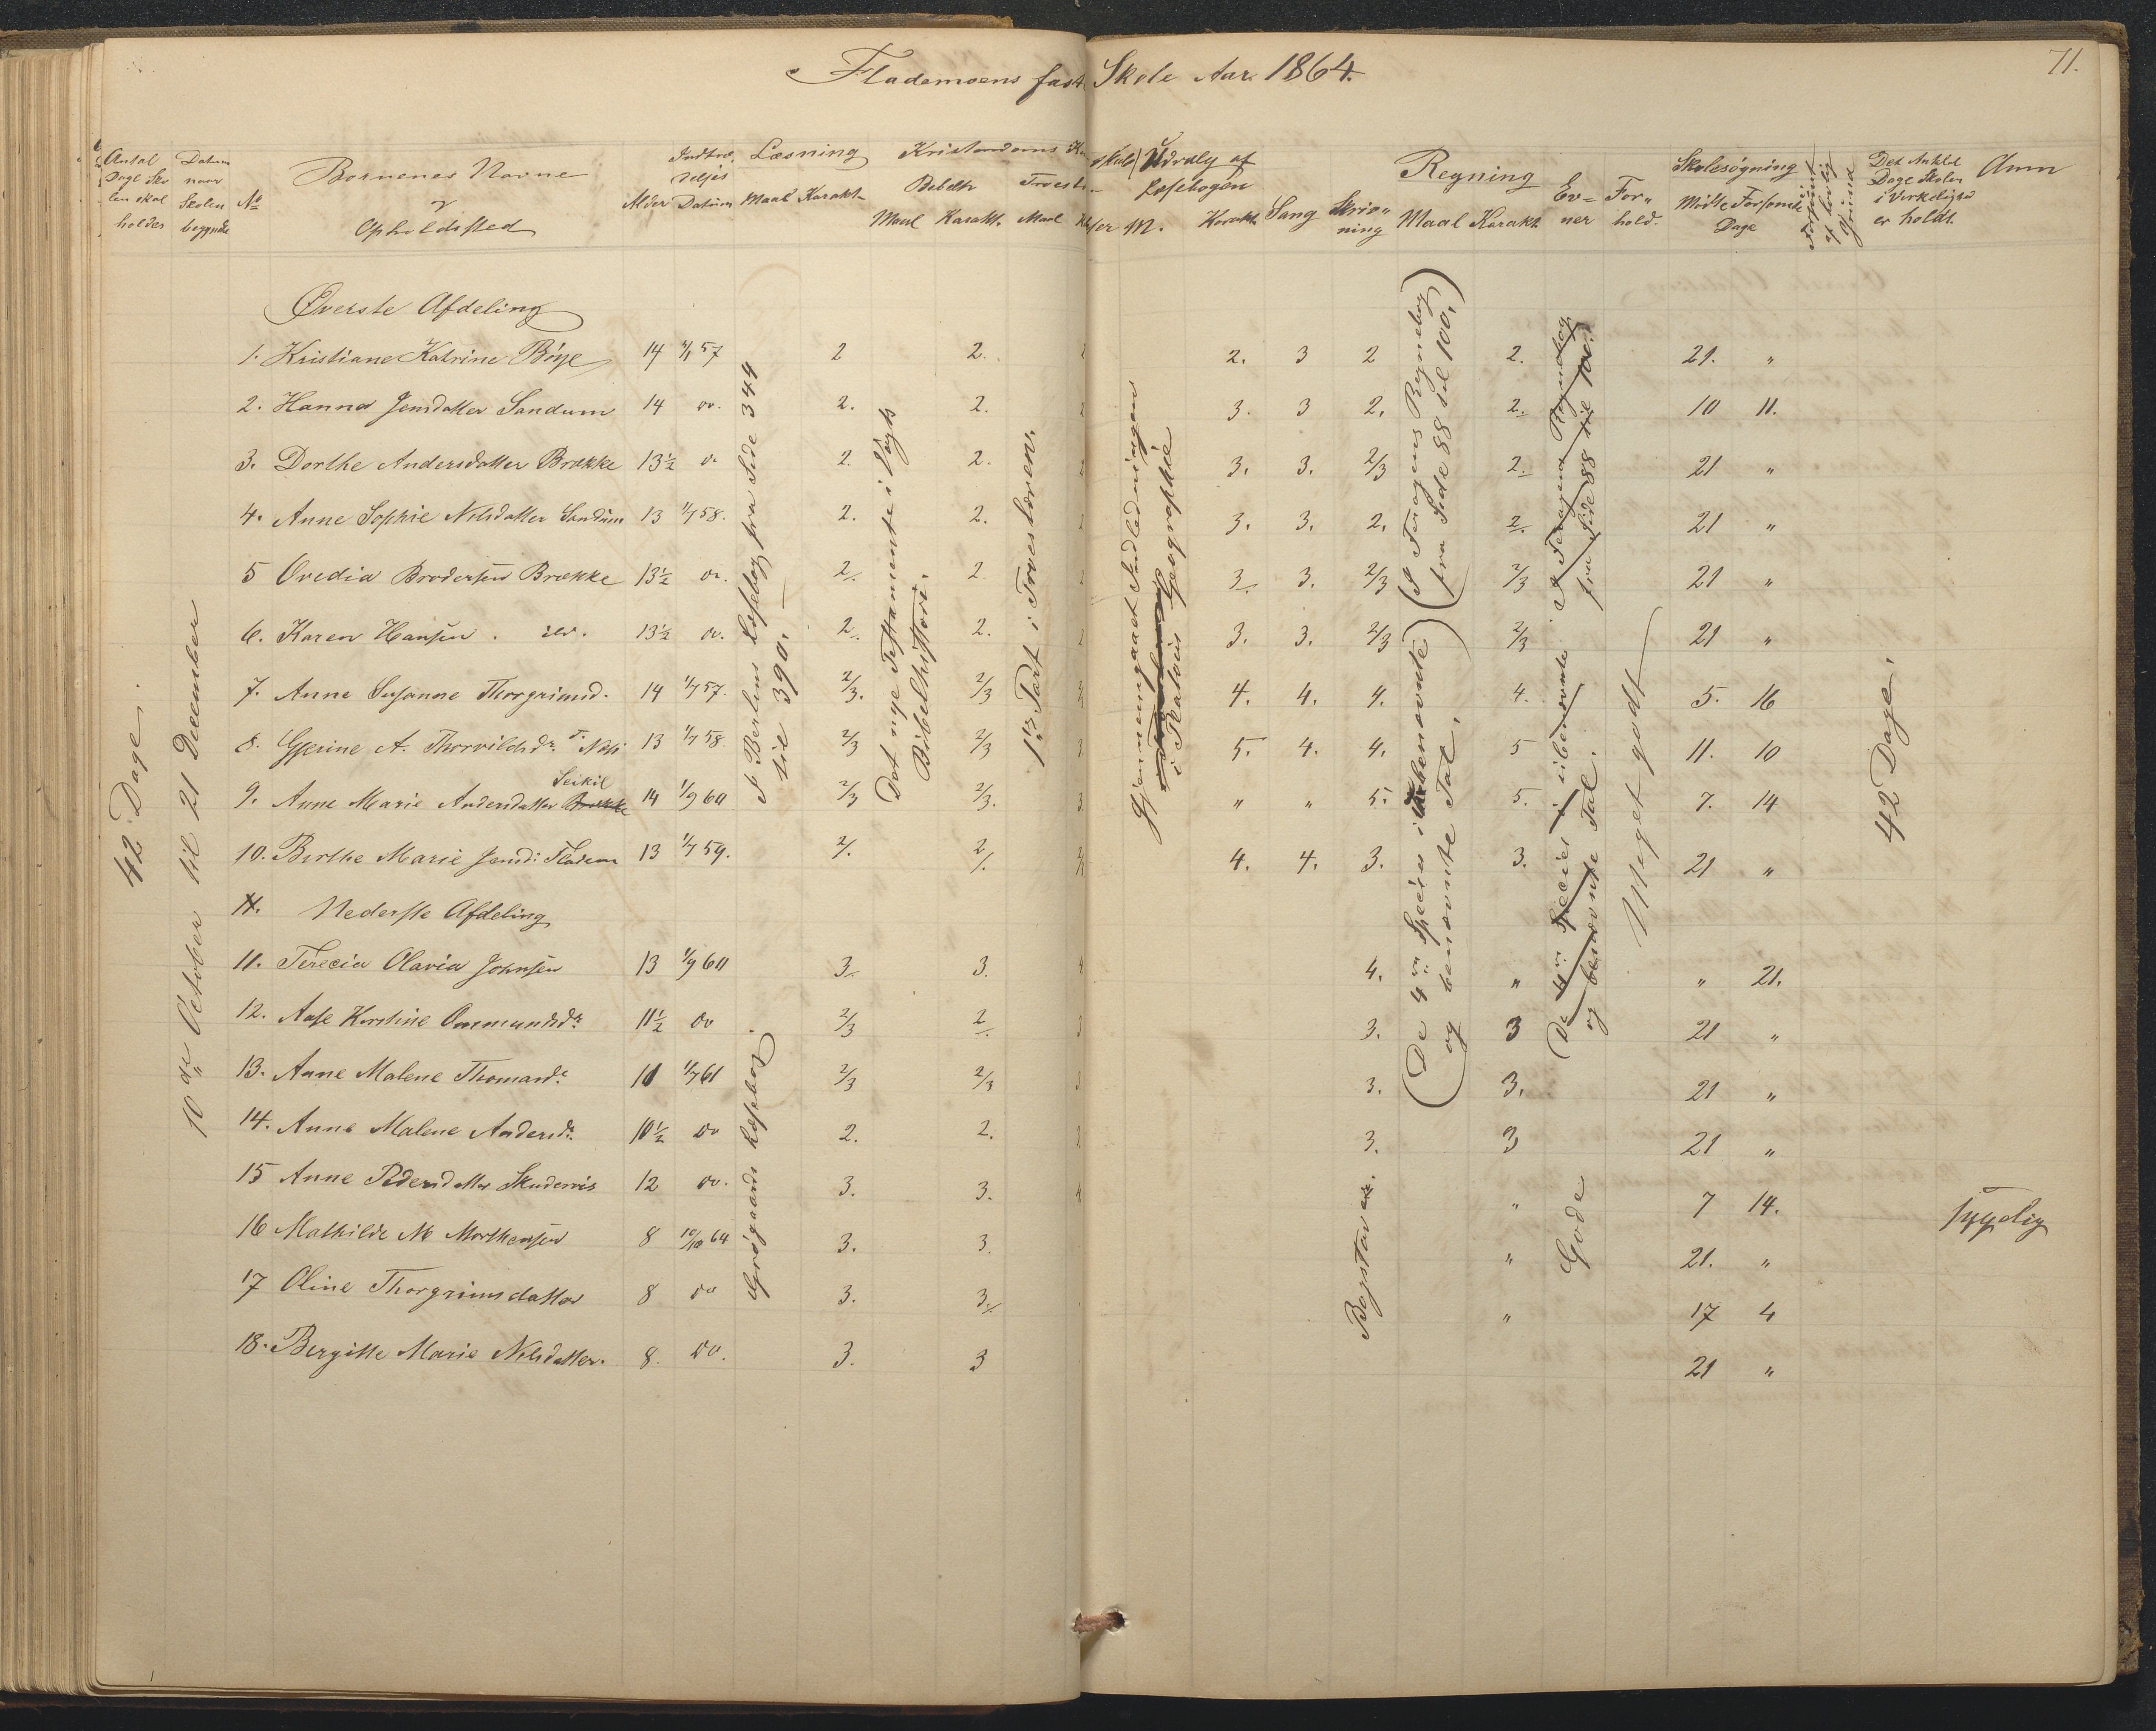 Flademoens fast Skole Aar 1864.
71.
Antal Dage Skolen skal holdes
Datum naar Skolen begyndte
No
Børnenes Navne og Opholdssted
Alder
Indtrædelses Datum
Læsning
Maal Karakt.
Kristendoms
Bibelh
Maal Karakt.
Troesl
Maal
Udvalg af Læsebogen
M. Karakt.
Sang
Skriv„ning
Regning
Maal Karakt.
Ev=ner
For„hold.
Skolesøgning
Mødte Forsømte Dage
Det Antal Dage Skolen i Virkelighed er holdt.
Anm
42 Dage.
10de October til 21 December
Øverste Afdeling
1. Kristiane Katrine Böye 14 1/1 57 2 2. 2. 3 2 2. 21. „
2. Hanna Jensdatter Sandum 14 do. 2. 2. 3. 3 2. 2. 10 11.
3. Dorthe Andersdatter Brække 13½ do 2. 2. 3. 3. 2/3 2. 21 „
4. Anne Sophie Nilsdatter Sandum 13 1/7 58. 2. 2. 3. 3. 2. 2. 21 „
5 Ovedia Brodersen Brække 13½ do. 2. 2 3. 3. 2/3 2/3 21 „
6. Karen Hansen . 13½ do. 2. 2. 3. 3. 2/3 2/3 21 „
7. Anne Susanne Thorgrimsd. 14 1/7 57. 2/3. 2/3 4. 4. 4. 4. 5. 16
8. Gjerine A. Thorvildsdr. 13 1/7 58 2/3 2/3 5. 4. 4. 5 11. 10
9. Anne Marie Andersdatter Seikil 14 1/9 60 2/3 2/3. „ „ 5. 5. 7. 14
10. Berthe Marie Jensd: Fladem 13 1/7 59. 2/. 2/. 4. 4. 3. 3. 21 „
11. Nederste Afdeling
11. Terecia Olavia Johnsen 13 1/9 60 3. 3. 4. „ „ 21.
12. Aase Kirstine Ommundsdr. 11½ do 2/3 2. 3. 3 21 „
13. Anne Malene Thomasdr. 11 1/7 61 2/3 2/3 3. 3. 21 „
14. Anne Malene Andersdr. 10½ do 2. 2. 3. 3 21 „
15 Anne Pedersdatter Skudervis 12 do. 3. 3. „ 7 14. Sygelig
16 Mathilde M Morthensen 8 10/10 64 3. 3. „ 21. „
17 Oline Thorgrimsdatter 8 do 3. 3. „ 17 4
18. Bergitte Marie Nilsdatter. 8. do. 3. 3 21 „
I Berlins Læsebog fra Side 344 til 390.
Grøgaards Læsebog.
Det nye Testamente i Vogts Bibelhistori.
1ste Part i Troeslæren.
Gjennemgaaet Indledningen i Geographie
Bogstaver.
(I Feragens Regnebog fra Side 88 til 100.)
(De 4re Species i ubenævnte og benævnte Tal.)
I Feragens Regnebog fra Side 88 til 100.
(De 4re Species i ubenævnte og benævnte Tal.
Gode
Meget godt
42 Dage.